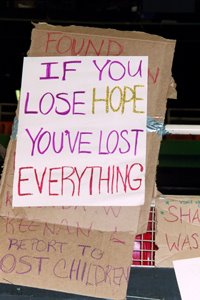 FOUND
IF YOU
LOSE HOPE
YOU'VE LOST
EVERYTHING
REPORT TO
OST CHILDREN
SHA
WAS